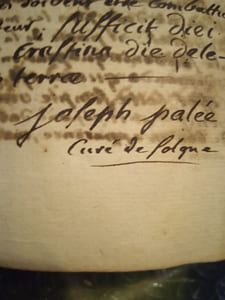 doivent etre combattu
sufficit diei
Crastina die dele-
terræ
Joseph palée
Curé de Solgne